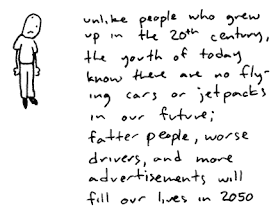 unlike people who grew
up in the 20th century,
the youth of today
know there are no fly-
ing cars or jetpacks
in our future;
fatter people, worse
drivers, and more
advertisements will
fill our lives in 2050